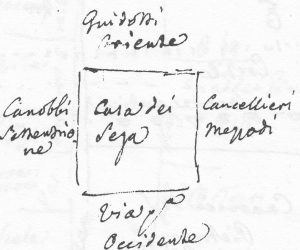 Guidotti
Oriente
Canobbi
Settentrio
ne
Casa dei
Sega
Cancellieri
Mezzodì
Via
Occidente